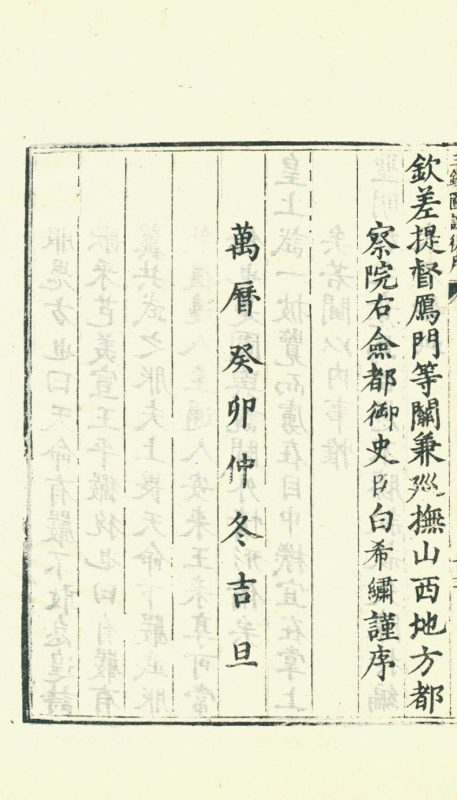 欽差提督鴈門等關兼廵撫山西地方都
察院右僉都御史臣白希繡謹序
萬曆癸卯仲冬吉旦